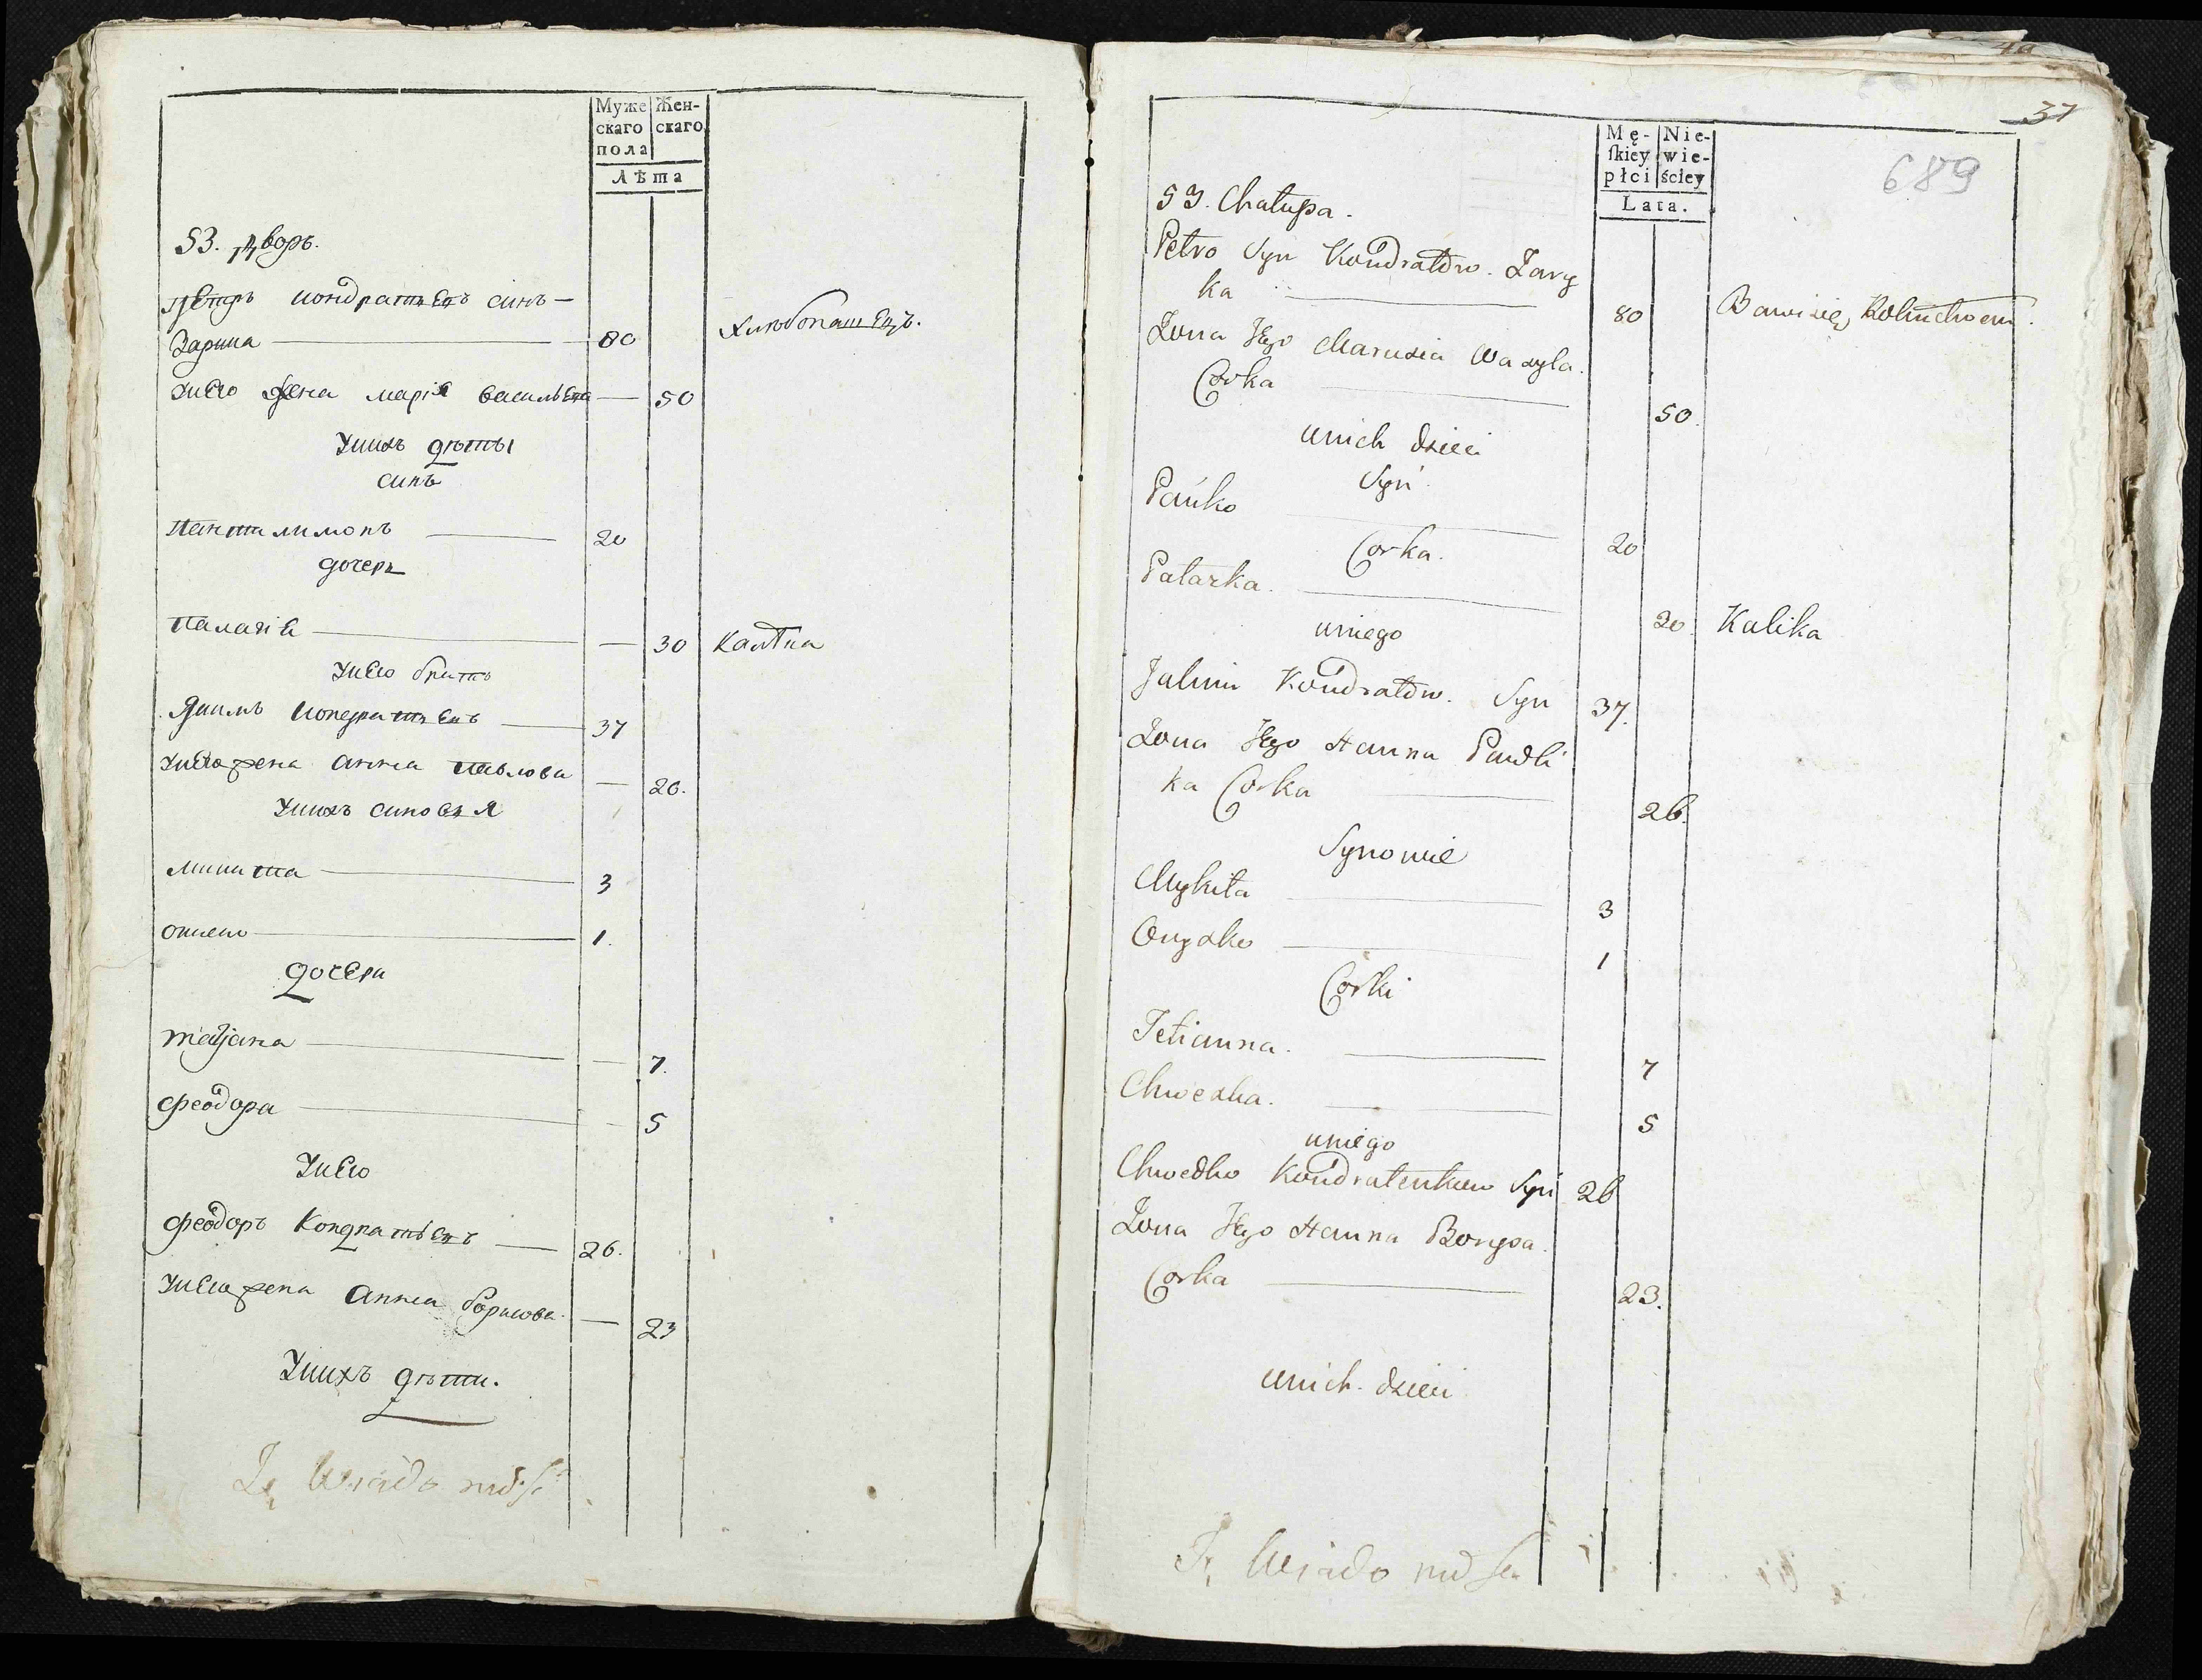 Муже Жен-
скаго скаго
пола
Лѣта
53. дворъ.
Петръ Кондратьевъ синъ —
Зарика — 80 хлѣбопашецъ.
У него жена марія васильева — 50
У нихъ дѣты
синъ
Пантилимонъ — 20
дочерь
Палагіа — 30 Калѣка
У него братъ
Якимъ Кондратьевъ — 37
У него жена анна павлова — 26.
У нихъ синовья
микита — 3
ониско — 1.
дочери
татјана — 7.
феодора — 5
У него
феодоръ Кондратьевъ — 26.
У него жена анна борисова — 23
У нихъ дѣти.
37
689
Mę- Nie-
ſkiey wie-
płci ściey
Lata.
53. Chałupa.
Petro Syn Kondratów. Zary
ka — 80 Bawi się Rolnictwem.
Żona Jego Marusia Wasyla.
Corka — 50.
unich dzieci
Syn
Pańko — 20
Corka.
Palazka. — 20. Kalika
uniego
Jakim Kondratów. Syn 37.
Żona Jego Hanna Pawli
ka Corka — 26.
Synowie
Mykita — 3
Onysko — 1
Corki
Tetianna. — 7
Chweska. — 5
uniego
Chwedko Kondratenkow Syn 26
Żona Jego Hanna Borysa.
Corka — 23.
unich dzieci